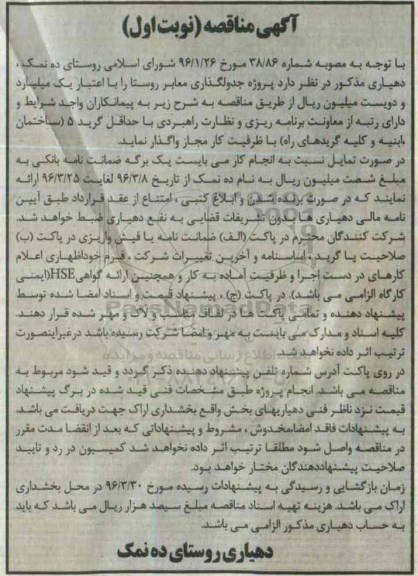 آگهی مناقصه (نوبت اول)
با توجه به مصوبه شماره ۳۸/۸۶ مورخ ۹۶/۱/۲۶ شورای اسلامی روستای ده نمک ،
دهیاری مذکور در نظر دارد پروژه جدولگذاری معابر روستا را با اعتبار یک میلیارد
و دویست میلیون ریال از طریق مناقصه به شرح زیر به پیمانکاران واجد شرایط و
دارای رتبه از معاونت برنامه ریزی و نظارت راهبردی با حداقل گرید ۵ (ساختمان
،ابنیه و کلیه گریدهای راه) با ظرفیت کار مجاز واگذار نماید.
در صورت تمایل نسبت به انجام کار می بایست یک برگه ضمانت نامه بانکی به
مبلغ شصت میلیون ریال به نام ده نمک از تاریخ ۹۶/۳/۸ لغایت ۹۶/۳/۲۵ ارائه
نمایند که در صورت برنده شدن و ابلاغ کتبی ، امتناع از عقد قرارداد طبق آیین
نامه مالی دهیاری ها بدون تشریفات قضایی به نفع دهیاری ضبط خواهد شد.
شرکت کنندگان محترم در پاکت (الف) ضمانت نامه یا فیش واریزی در پاکت (ب)
صلاحیت یا گرید ، اساسنامه و آخرین تغییرات شرکت ، فرم خوداظهاری اعلام
کارهای در دست اجرا و ظرفیت آماده به کار و همچنین ارائه گواهی HSE(ایمنی
کارگاه الزامی می باشد). در پاکت (ج) ، پیشنهاد قیمت و اسناد امضا شده توسط
پیشنهاد دهنده و تمامی پاکت ها در لفاف مناسب ولاک و مهر شده قرار دهند.
کلیه اسناد و مدارک می بایست به مهر و امضا شرکت رسیده باشد درغیراینصورت
ترتیب اثر داده نخواهد شد.
در روی پاکت آدرس شماره تلفن پیشنهاد دهنده ذکر گردد و قید شود مربوط به
مناقصه می باشد. انجام پروژه طبق مشخصات فنی قید شده در برگ پیشنهاد
قیمت نزد ناظر فنی دهیاریهای بخش واقع بخشداری اراک جهت دریافت می باشد.
به پیشنهادات فاقد امضا،مخدوش ، مشروط و پیشنهاداتی که بعد از انقضا مدت مقرر
در مناقصه واصل شود مطلقا ترتیب اثر داده نخواهد شد کمیسیون در رد و تایید
صلاحیت پیشنهاددهندگان مختار خواهد بود.
زمان بازگشایی و رسیدگی به پیشنهادات رسیده مورخ ۹۶/۳/۳۰ در محل بخشداری
اراک می باشد. هزینه تهیه اسناد مناقصه مبلغ سیصد هزار ریال می باشد که باید
به حساب دهیاری مذکور الزامی می باشد.
دهیاری روستای ده نمک